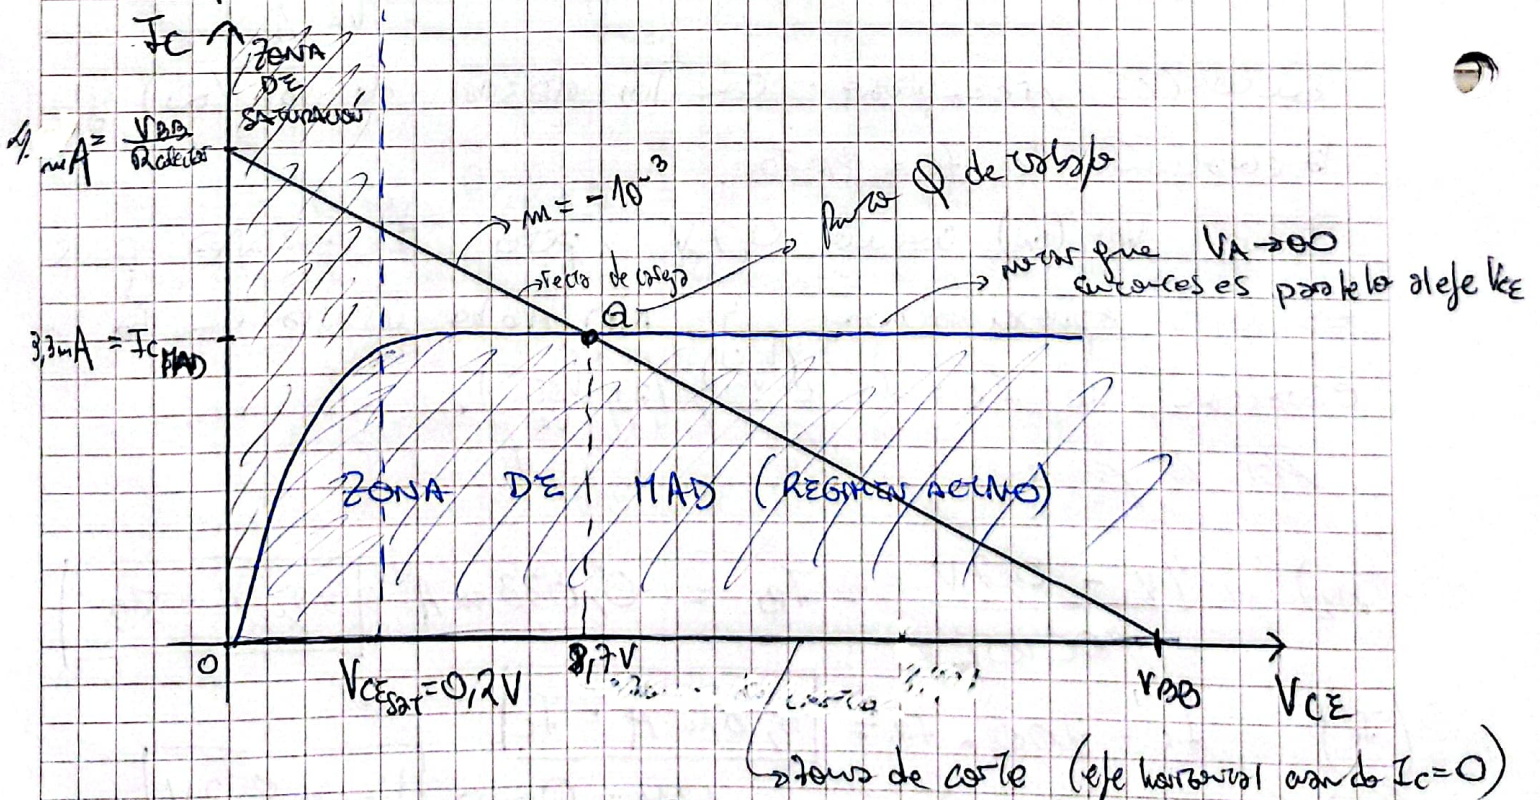 IC
ZONA
DE
SATURACIÓN
mA = VBB
m = -10^-3
Punto Q de trabajo
recta de carga
Q
notar que VA→∞
entonces es paralelo al eje VCE
3,3mA = IC MAD
ZONA DE MAD (REGIMEN ACTIVO)
0
VCE SAT = 0,2V
8,7V
VBB
VCE
→zona de corte (eje horizontal cuando IC=0)